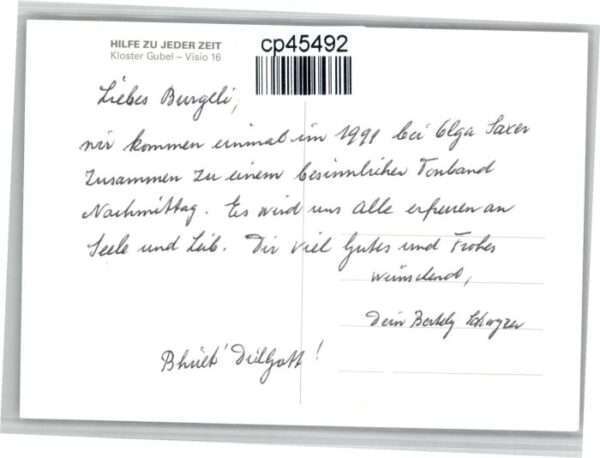 HILFE ZU JEDER ZEIT
Kloster Gubel – Visio 16
cp45492
Liebes Burgeli,
wir kommen einmal im 1991 bei Olga Saxer
zusammen zu einem besinnlichen Tonband
Nachmittag. Es wird uns alle erfreuen an
Seele und Leib. Dir viel Gutes und Frohes
wünschend,
Dein Schwyzer
Bhüet Di Gott!